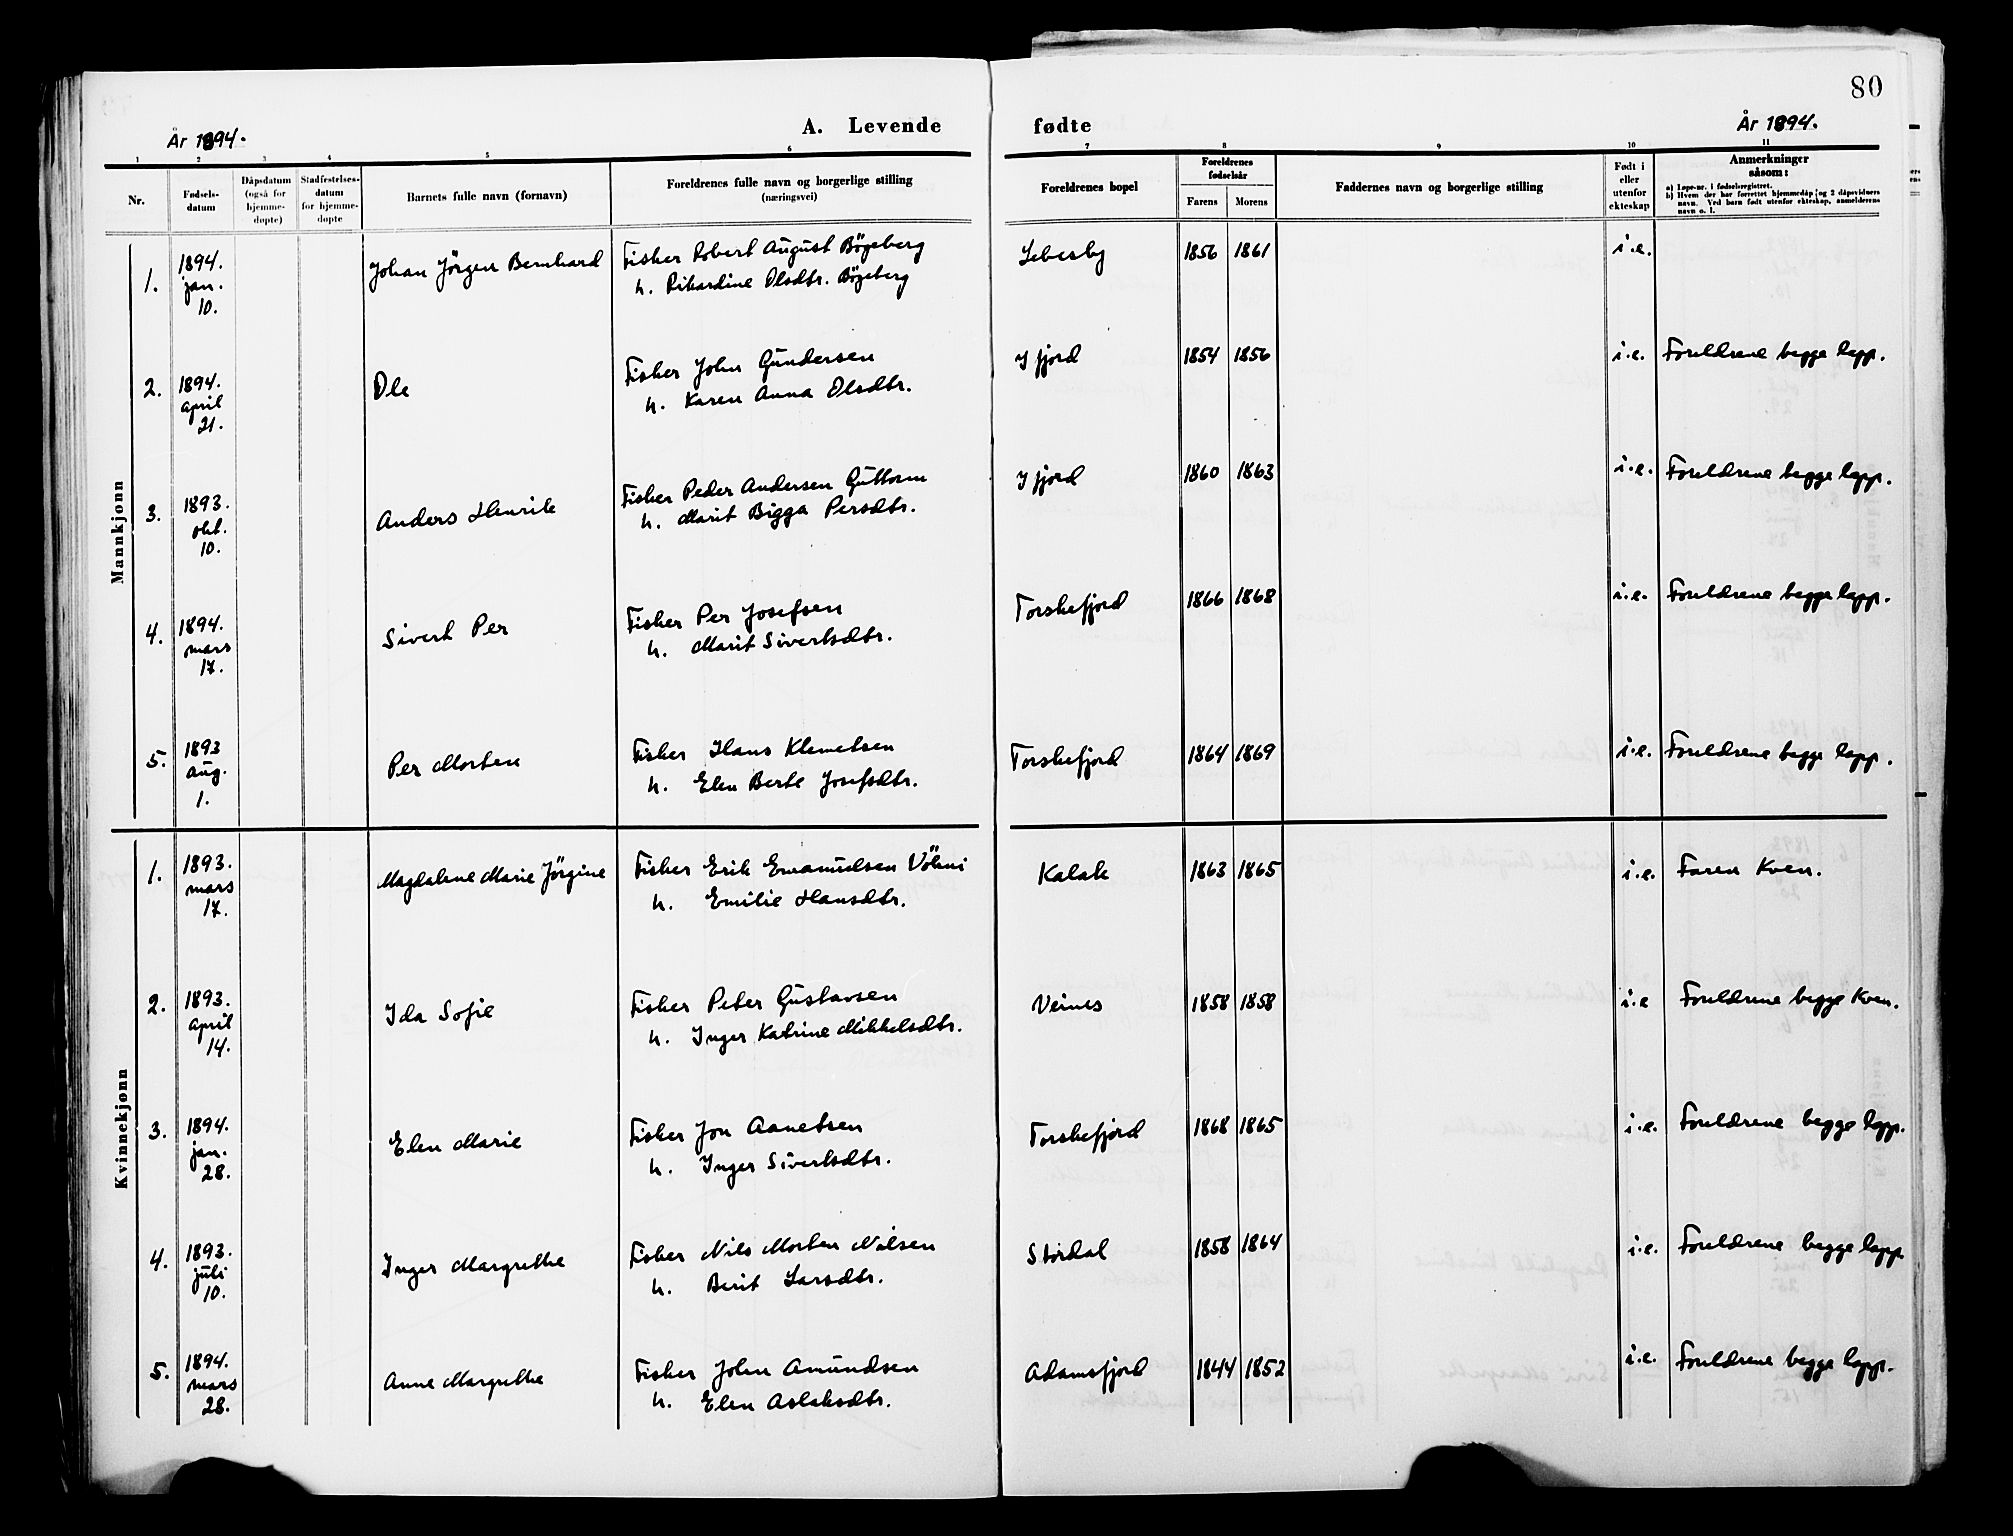 80
År 1894.
A. Levende fødte
År 1894.
1 2 3 4 5 6 7 8 9 10 11
Nr.
Fødsels-
datum
Dåpsdatum
(også for
hjemme-
døpte)
Stadfestelses-
datum
for hjemme-
døpte
Barnets fulle navn (fornavn)
Foreldrenes fulle navn og borgerlige stilling
(næringsvei)
Foreldrenes bopel
Foreldrenes
fødselsår
Farens Morens
Faddernes navn og borgerlige stilling
Født i
eller
utenfor
ekteskap
Anmerkninger
såsom:
a) Løpe-nr. i fødselsregistret.
b) Hvem der har forrettet hjemmedåp og 2 dåpsvidners
navn. Ved barn født utenfor ekteskap, anmelderens
navn o. l.
Mannkjønn
1. 1894. jan. 10. Johan Jörgen Bernhard
Fisker Robert August Bögeberg
h. Rikardine Olsdtr. Bögeberg
Lebesby 1856 1861 i.e.
2. 1894. april 21. Ole
Fisker John Gundersen
h. Karen Anna Olsdtr.
Ifjord 1854 1856 i.e. Foreldrene begge lapp.
3. 1893. okt. 10. Anders Henrik
Fisker Peder Andersen Guttorm
h. Marit Bigga Persdtr.
Ifjord 1860 1863 i.e. Foreldrene begge lapp.
4. 1894. mars 17. Sivert Per
Fisker Per Josefsen
h. Marit Sivertsdtr.
Torskefjord 1866 1868 i.e. Foreldrene begge lapp.
5. 1893 aug. 1. Per Morten
Fisker Hans Klemetsen
h. Elen Berte Josefsdtr.
Torskefjord 1864 1869 i.e. Foreldrene begge lapp.
Kvinnekjønn
1. 1893. mars 17. Magdalene Marie Jörgine
Fisker Erik Emanuelsen
h. Emilie Hansdtr.
Kalak 1863 1865 i.e. Faren Kven.
2. 1893. april 14. Ida Sofie
Fisker Peter Gustavsen
h. Inger Katrine Mikkelsdtr.
Veines 1858 1858 i.e Foreldrene begge Kven.
3. 1894. jan. 28. Elen Marie
Fisker Jon Aanetsen
h. Inger Sivertsdtr.
Torskefjord 1868 1865 i.e. Foreldrene begge lapp.
4. 1893. juli 10. Inger Margrethe
Fisker Nils Morten Nilsen
h. Berit Larsdtr.
Stordal 1858 1864 i.e. Foreldrene begge lapp.
5. 1894. mars 28. Anne Margrethe
Fisker John Amundsen
h. Elen Aslaksdtr.
Adamsfjord 1844 1852 i.e. Foreldrene begge lapp.